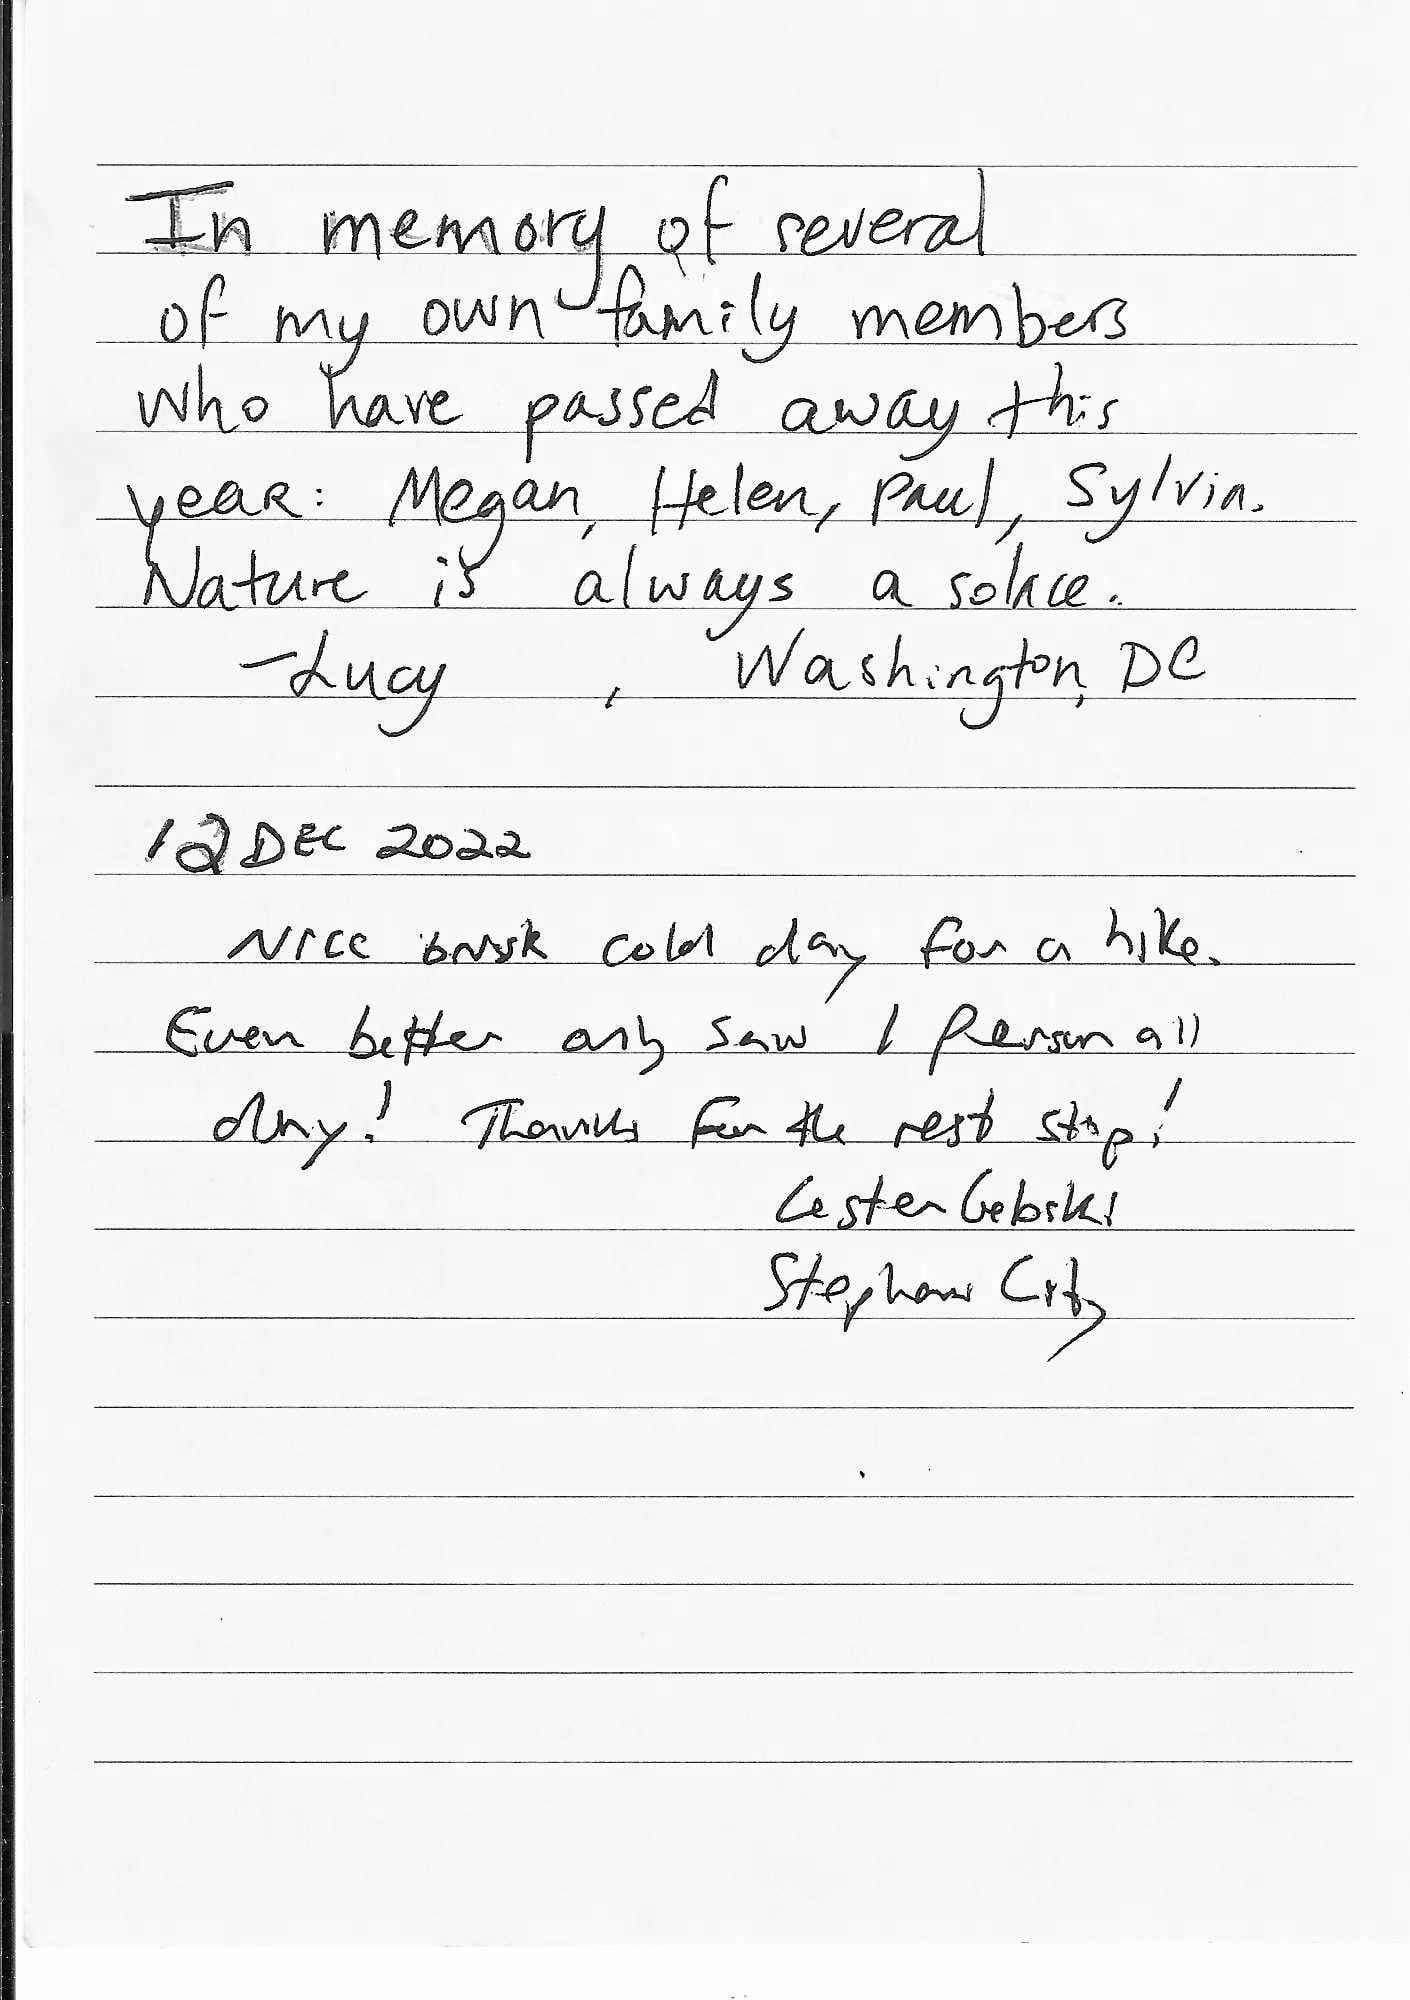 In memory of several
of my own family members
who have passed away this
year: Megan, Helen, Paul, Sylvia.
Nature is always a solace.
-Lucy , Washington, DC
12 DEC 2022
Nice brisk cold day for a hike.
Even better only saw 1 person all
day! Thanks for the rest stop!
Lester Gebski
Stephens City